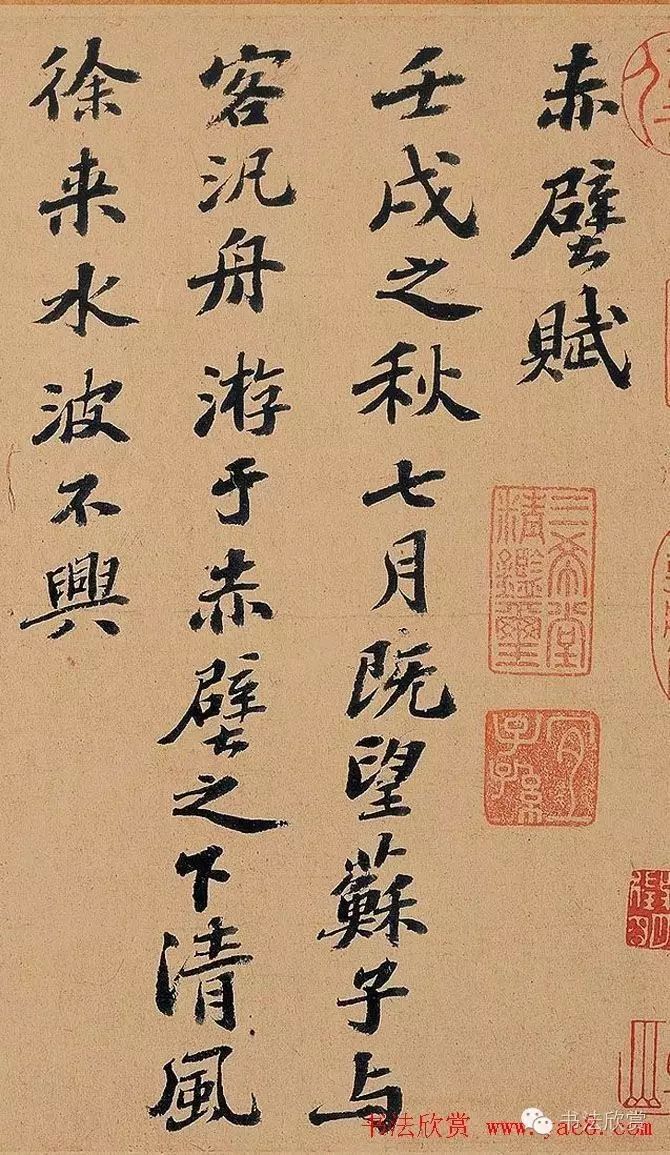 赤壁賦
壬戌之秋七月既望蘇子与
客汎舟游于赤壁之下清風
徐来水波不興
三希堂
精鑑璽
宜子孫
书法欣赏
书法欣赏 www.yac8.com